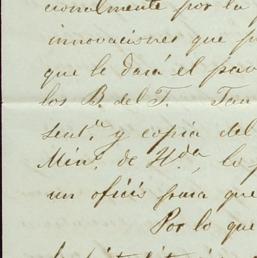 cionalmente por la
innovaciones que p
que le dará el pa
los B. del T. Tan
sent.ª y copia del
Min.º de H.da, lo p
un oficio para que
Por lo que